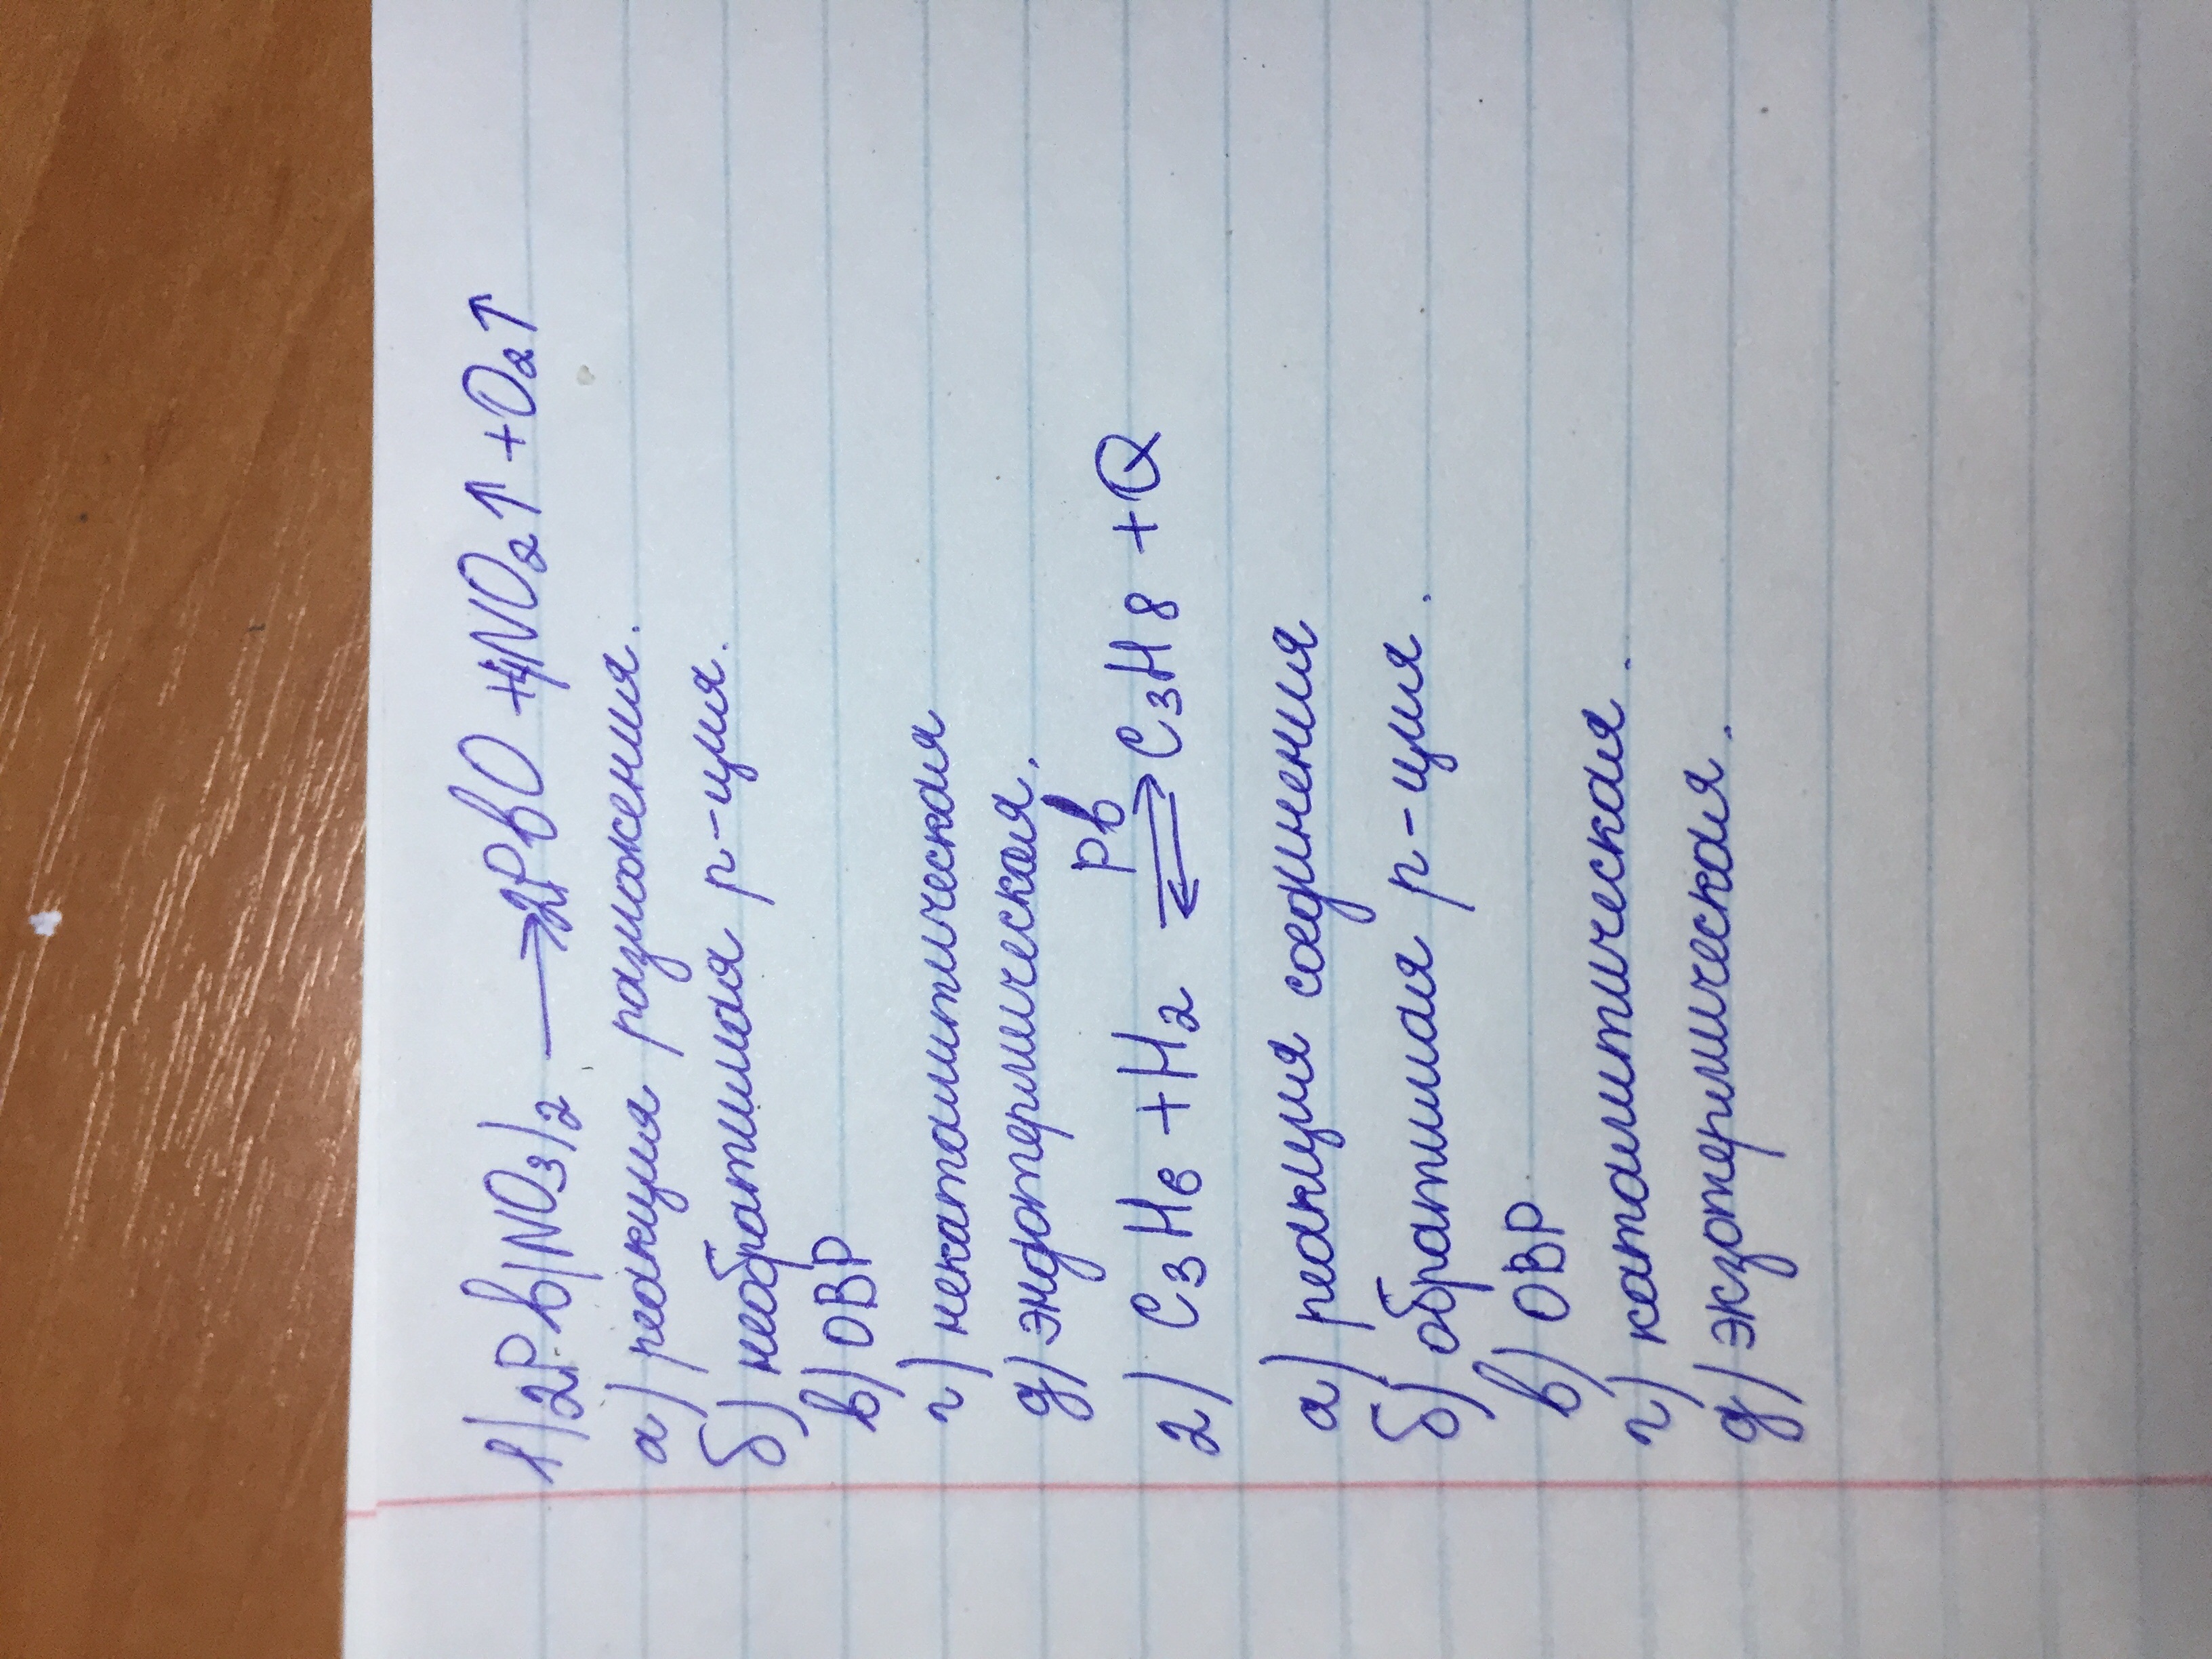 1) 2Pb(NO₃)₂ → 2PbO + 4NO₂↑ + O₂↑
а) реакция разложения.
б) необратимая р-ция.
в) ОВР
г) некаталитическая
д) эндотермическая.
2) C₃H₆ + H₂ ⇄ Pb C₃H₈ + Q
а) реакция соединения
б) обратимая р-ция.
в) ОВР
г) каталитическая.
д) экзотермическая.